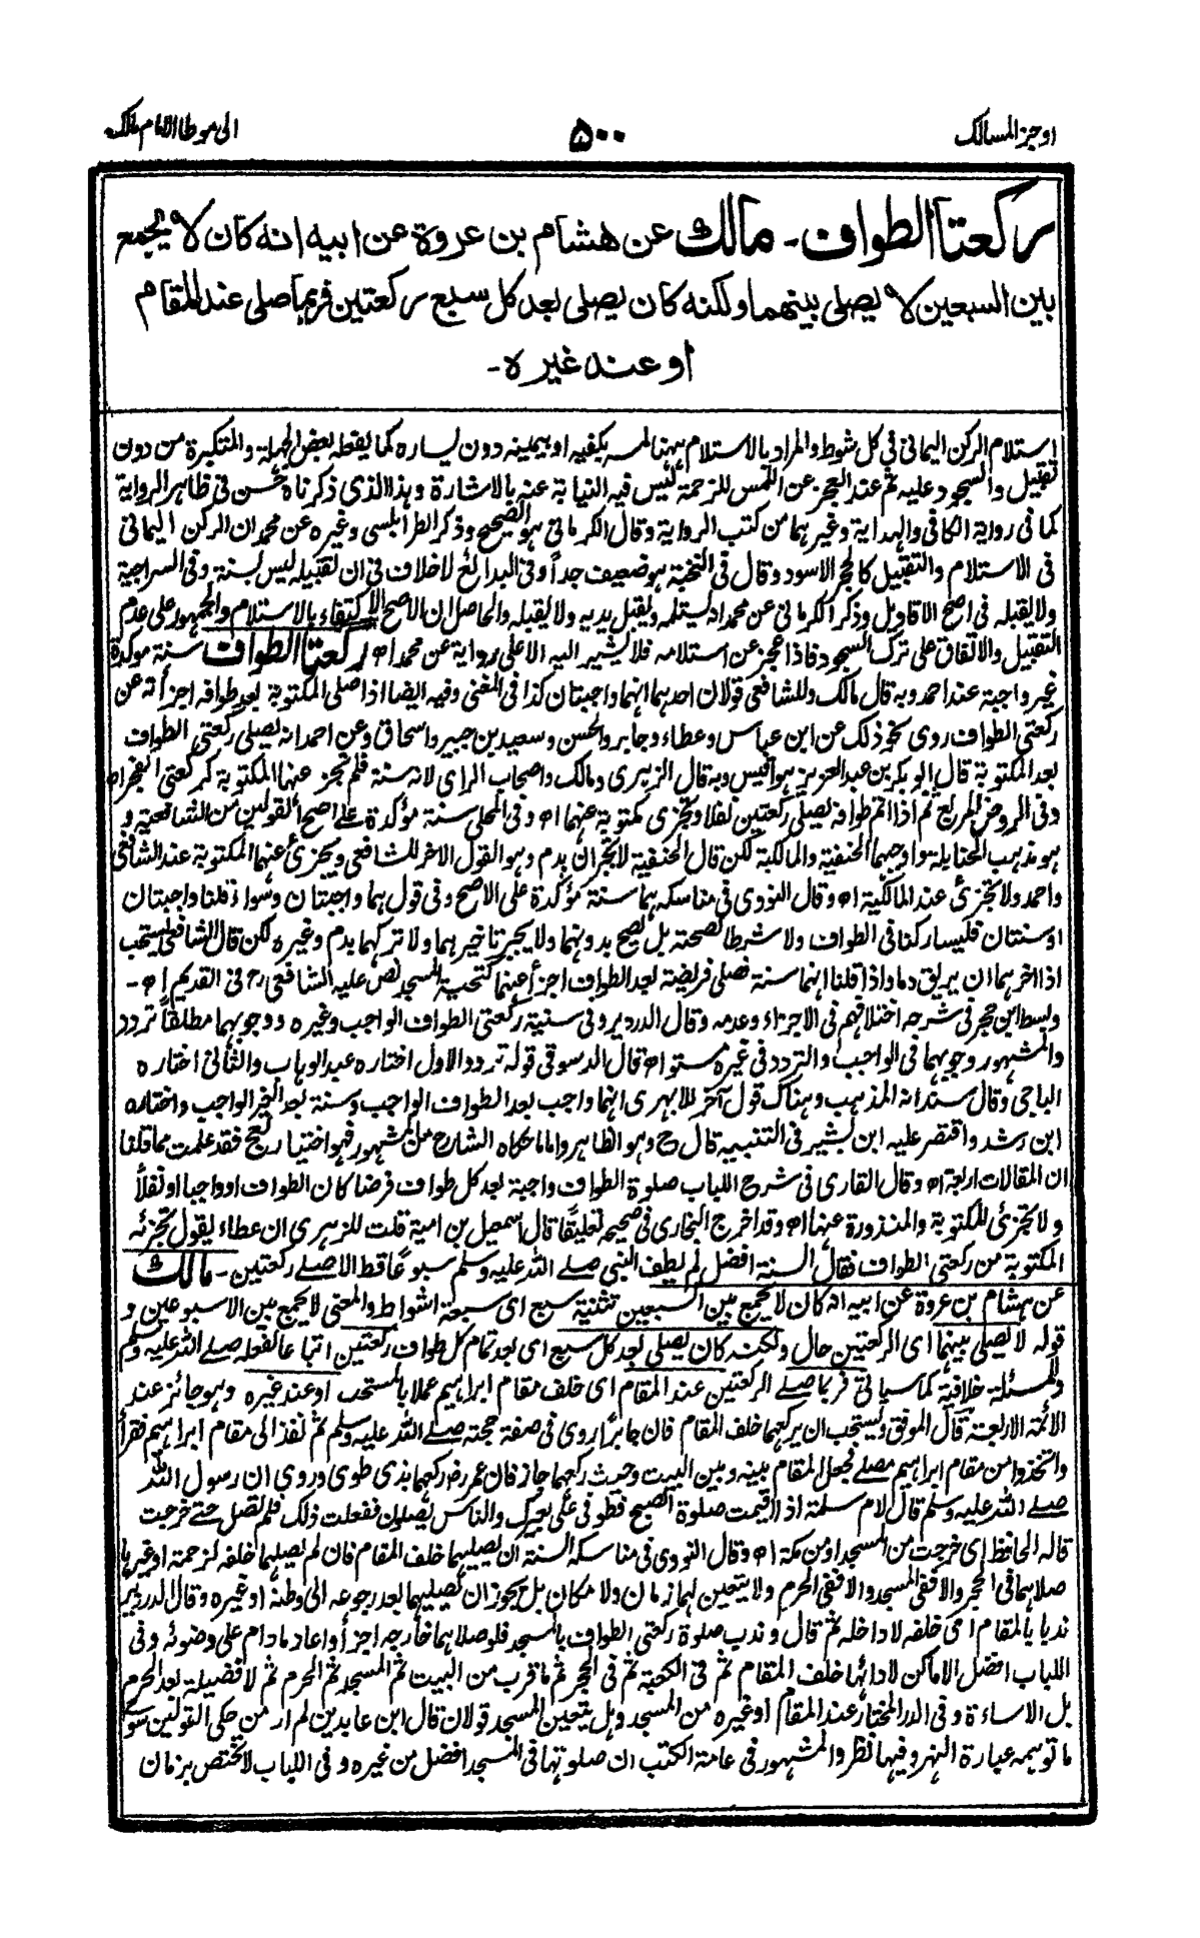 اوجز المسالك
٥٠٠
الى موطا الامام مالك
ركعتا الطواف - مالك عن هشام بن عروة عن ابيه انه كان لا يجمع
بين السبعين لا يصلى بينهما ولكنه كان يصلى بعد كل سبع ركعتين فربما صلى عند المقام
او عند غيره -
استلام الركن اليمانى فى كل شوط والمراد بالاستلام ههنا لمسه بكفيه او بيمينه دون يساره كما يفعله بعض الجهلة والمتكبرة من دون
تقبيل والسجود عليه ثم عند العجز عن اللمس للزحمة ليس فيه النيابة عنه بالاشارة وهذا الذى ذكرناه حسن فى ظاهر الرواية
كما فى رواية الكافى والهداية وغيرهما من كتب الرواية وقال الكرمانى هو الصحيح وذكر الطرابلسى وغيره عن محمد ان الركن اليمانى
فى الاستلام والتقبيل كالحجر الاسود وقال فى النخبة هو ضعيف جداً وفى البدائع لا خلاف فى ان تقبيله ليس بسنة وفى السراجية
ولا يقبله فى اصح الاقاويل وذكر الكرمانى عن محمد انه يستلمه ويقبل يديه ولا يقبله والحاصل ان الاصح الاكتفاء بالاستلام والجمهور على عدم
التقبيل والاتفاق على ترك السجود فاذا عجز عن استلامه فلا يشير اليه الا على رواية عن محمد اه ركعتا الطواف سنة موكدة
غير واجبة عند احمد وبه قال مالك وللشافعى قولان احدهما انهما واجبتان كذا فى المغنى وفيه ايضا اذا صلى المكتوبة بعد طوافه اجزأته عن
ركعتى الطواف روى نحو ذلك عن ابن عباس وعطاء وجابر والحسن وسعيد بن جبير واسحاق وعن احمد انه يصلى ركعتى الطواف
بعد المكتوبة قال ابو بكر بن عبد العزيز هو اقيس وبه قال الزهرى ومالك واصحاب الراى لانه سنة فلم تجز عنها المكتوبة كركعتى الفجر اه
وفى الروض المربع ثم اذا اتم طوافه يصلى ركعتين نفلا وتجزى مكتوبة عنهما اه وفى المحلى سنة مؤكدة على اصح القولين من الشافعية و
هو مذهب الحنابلة واوجبها الحنفية والمالكية لكن قال الحنفية لا تجبران بدم وهو القول الاخر للشافعى ويجزئ عنهما المكتوبة عند الشافعى
واحمد ولا تجزئ عند المالكية اه وقال النووى فى مناسكه هما سنة مؤكدة على الاصح وفى قول هما واجبتان وسواء قلنا واجبتان
او سنتان فليسا ركنا فى الطواف ولا شرطا لصحته بل يصح بدونهما ولا يجبر تاخيرهما ولا تركهما بدم وغيره لكن قال الشافعى يستحب
اذا اخرهما ان يريق دما واذا قلنا انهما سنة فصلى فريضة بعد الطواف اجزأ عنهما كتحية المسجد نص عليه الشافعى رح فى القديم اه -
وبسط ابن حجر فى شرحه اختلافهم فى الاجزاء وعدمه وقال الدردير وفى سنية ركعتى الطواف الواجب وغيره ووجوبهما مطلقاً تردد
والمشهور وجوبهما فى الواجب والتردد فى غيره مستو اه قال الدسوقى قوله تردد الاول اختاره عبد الوهاب والثانى اختاره
الباجى وقال سند انه المذهب وهناك قول آخر للابهرى انهما واجب بعد الطواف الواجب وسنة بعد الغير الواجب واختاره
ابن رشد واقتصر عليه ابن بشير فى التنبيه قال ح وهو الظاهر واما ما حكاه الشارح من المشهور فهو اختيار لعج فقد علمت مما قلنا
ان المقالات اربعة اه وقال القارى فى شرح اللباب صلوة الطواف واجبة بعد كل طواف فرضا كان الطواف او واجبا او نفلاً
ولا تجزئ للمكتوبة والمنذورة عنها اه وقد اخرج البخارى فى صحيحه تعليقا قال اسمعيل بن امية قلت للزهرى ان عطاء يقول تجزئه
المكتوبة من ركعتى الطواف فقال السنة افضل لم يطف النبى صلى الله عليه وسلم سبوعاً قط الا صلى ركعتين - مالك
عن هشام بن عروة عن ابيه انه كان لا يجمع بين السبعين تثنية سبع اى سبعة اشواط والمعنى لا يجمع بين الاسبوعين و
قوله لا يصلى بينهما اى الركعتين حال ولكنه كان يصلى بعد كل سبع اى بعد تمام كل طواف ركعتين اتباعا لفعله صلى الله عليه وسلم
والمسئلة خلافية كما سياتى فربما صلى الركعتين عند المقام اى خلف مقام ابراهيم عملا بالمستحب او عند غيره وهو جائز عند
الائمة الاربعة قال الموفق ويستحب ان يركعهما خلف المقام فان جابراً روى فى صفة حجته صلى الله عليه وسلم ثم نفذ الى مقام ابراهيم فقرأ
واتخذوا من مقام ابراهيم مصلى فجعل المقام بينه وبين البيت وحيث ركعهما جاز فان عمر رض ركعهما بذى طوى وروى ان رسول الله
صلى الله عليه وسلم قال لام سلمة اذا اقيمت صلوة الصبح فطوفى على بعيرك والناس يصلون ففعلت ذلك فلم تصل حتى خرجت
قاله الحافظ اى خرجت من المسجد او من مكة اه وقال النووى فى مناسكه السنة ان يصليهما خلف المقام فان لم يصليهما خلفه لزحمة او غيرها
صلاهما فى الحجر والا ففى المسجد والا ففى الحرم ولا يتعين لهما زمان ولا مكان بل يجوز ان يصليهما بعد رجوعه الى وطنه او غيره وقال الدردير
ندبا بالمقام اى خلفه لا داخله ثم قال وندب صلوة ركعتى الطواف بالمسجد فلو صلاهما خارجه اجزأ واعاد مادام على وضوئه وفى
اللباب افضل الاماكن لادائها خلف المقام ثم فى الكعبة ثم فى الحجر ثم ما قرب من البيت ثم المسجد ثم الحرم ثم لا فضيلة بعد الحرم
بل الاساءة وفى الدر المختار عند المقام او غيره من المسجد وهل يتعين المسجد قولان قال ابن عابدين لم ار من حكى القولين سوى
ما توهمه عبارة النهر وفيها نظر والمشهور فى عامة الكتب ان صلوتها فى المسجد افضل من غيره وفى اللباب لا تختص بزمان